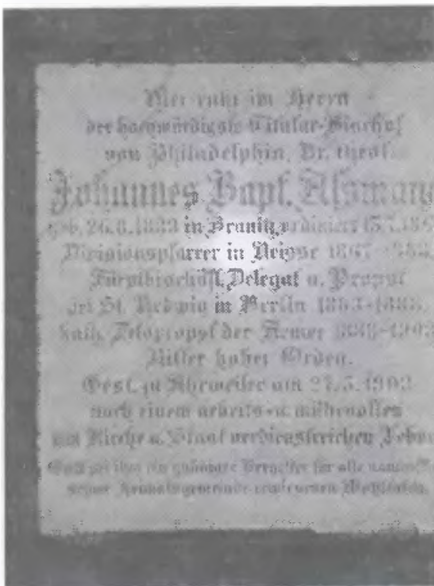 Hier ruht im Herrn
der hochwürdigste Titular-Bischof
von Philadelphia, Dr. theol.
Johannes Bapt. Assmann
geb. 26.8.1833 in Branitz, ordiniert
Divisionspfarrer in Neisse
Fürstbischöfl. Delegat u. Propst
bei St. Hedwig in Berlin
kath. Feldpropst der Armee 1888-1903
Ritter hoher Orden.
Gest. zu Ahrweiler am 27.5.1903
nach einem arbeits- u. mühevollen
um Kirche u. Staat verdienstreichen Leben
Gott sei ihm ein gnädiger Vergelter für alle
seiner Heimatgemeinde erwiesenen Wohltaten.